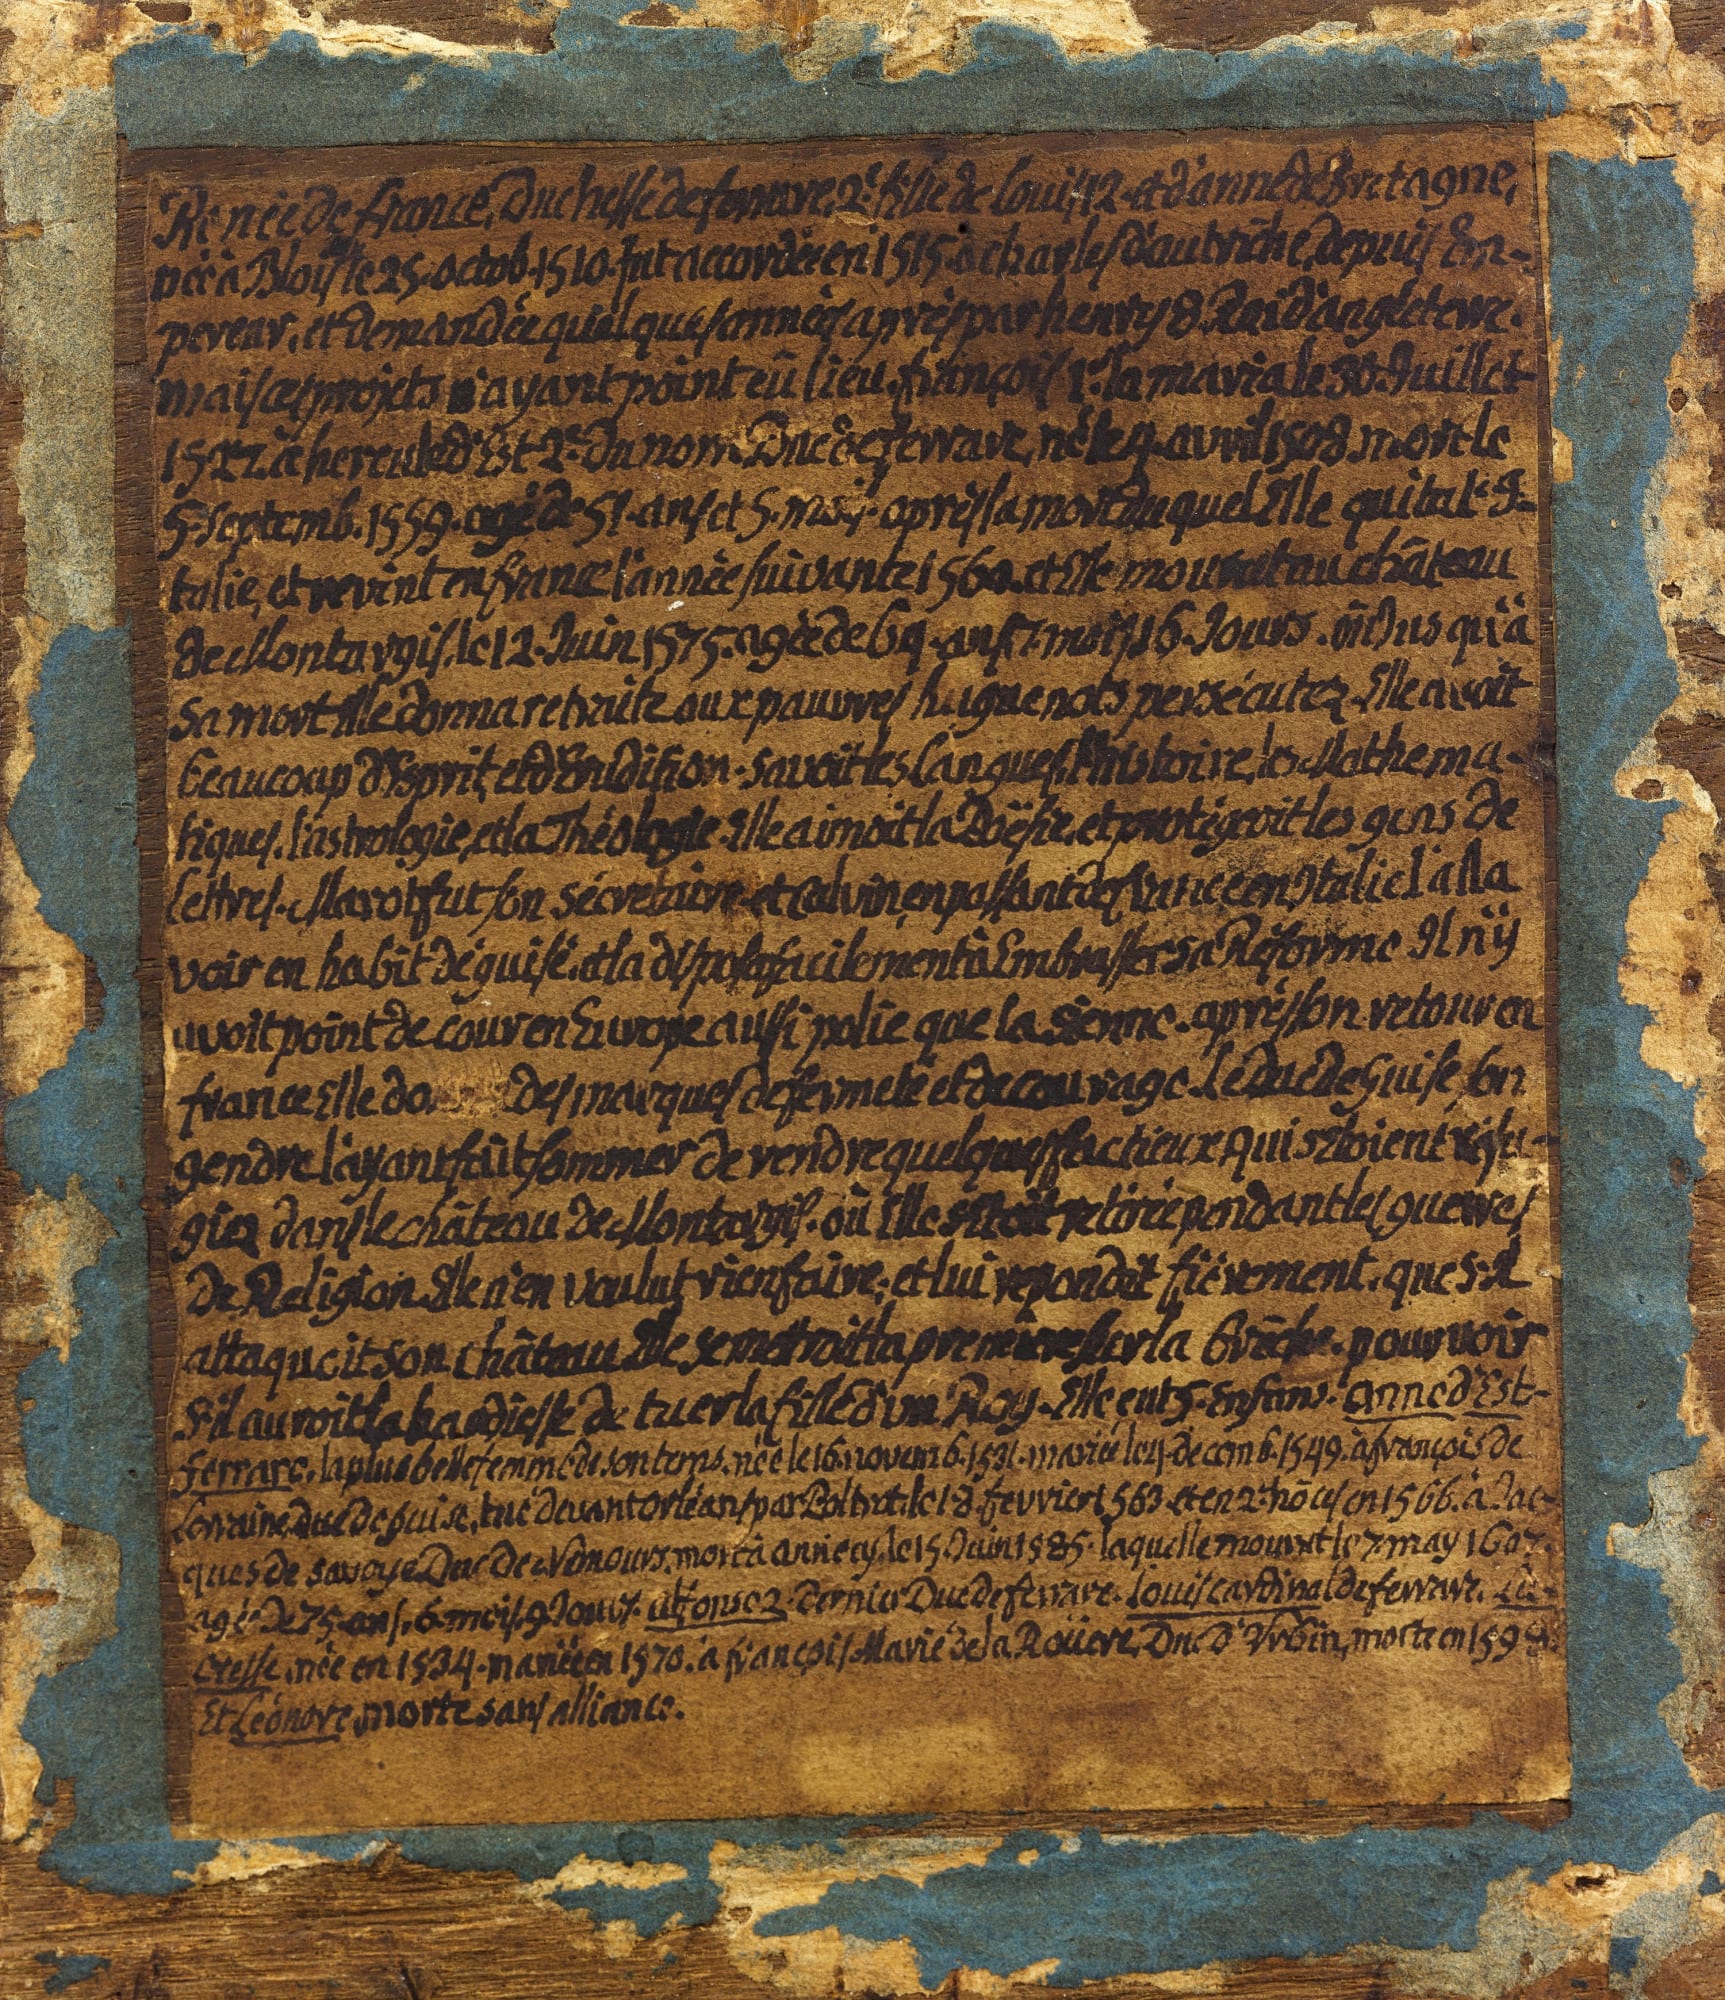 Renée de france, Duchesse de ferrare, 2e fille de Louis 12. et d'anne de Bretagne,
née à Blois le 25. octob. 1510. fut accordée en 1515. à charles d'autriche, depuis Em-
pereur, et demandée quelques années après par henry 8. Roi d'angleterre.
mais ces projets n'ayant point eû lieu, françois 1r. la maria le 30. Juillet
1527. à hercule d'Est 2e. du nom Duc de ferrare, né le 4. avril 1508. mort le
5. septemb. 1559. agé de 51. ans et 5. mois. après la mort duquel Elle quita l'I-
talie, et revint en france l'année suivante 1560. et Elle mourut au château
de Montargis, le 12. Juin 1575. agée de 64. ans 7. mois 16. Jours. où Jusqu'à
sa mort Elle donna retraite aux pauvres huguenots persécutez. Elle avoit
beaucoup d'Esprit, et d'Erudition. savoit les langues, l'histoire, les Mathema-
tiques, l'astrologie, et la Théologie. Elle aimoit la Poësie, et protégeoit les gens de
lettres. Marot fut son sécretaire. et Calvin, en passant de france en Italie l'alla
voir en habit déguisé, et la disposa facilement à Embrasser sa Réforme. Il n'ÿ
avoit point de cour en Europe aussi polie que la sienne. après son retour en
france Elle do des marques de fermeté et de courage. Le Duc de Guise son
gendre l'ayant fait sommer de rendre quelques factieux qui s'étoient réfu-
giez dans le château de Montargis. où Elle s'étoit retirée pendant les guerres
de Religion. Elle n'en voulut rien faire, et lui repondit fiérement. que s'Il
attaquoit son château Elle se mettroit la premiere sur la brêche. pour voir
s'il auroit la hardiesse de tuer la fille d'un Roy. Elle eut 5. Enfans. anne d'Est-
ferrare, la plus belle femme de son tems, née le 16. novemb. 1531. mariée le 4. decemb. 1549. à françois de
Lorraine duc de guise, tué devant Orléans par Poltrot. le 18. fevrier 1563. et en 2es. nôces en 1566. à Jac-
ques de savoye Duc de Nemours. mort à annecy. le 15. Juin 1585. laquelle mourut le 7. may 1607.
agée de 75. ans. 6. mois. 9 Jours. alfonse 2. dernier Duc de ferrare. Louis cardinal de ferrare. Lu-
cresse, née en 1534. mariée en 1570. à françois Marie de la Roüere, Duc d'Vrbin, morte en 1598.
Et Léonore, morte sans alliance.